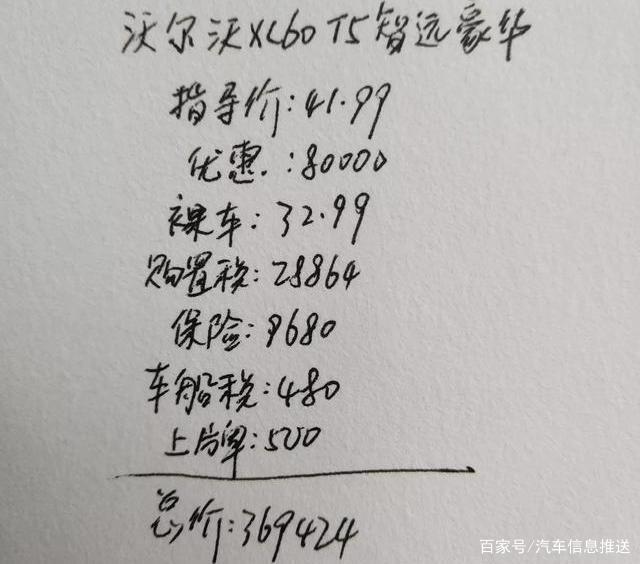 沃尔沃XC60 T5智远豪华
指导价:41.99
优惠:80000
裸车:32.99
购置税:28864
保险:9680
车船税:480
上牌:500
总价:369424
百家号/汽车信息推送